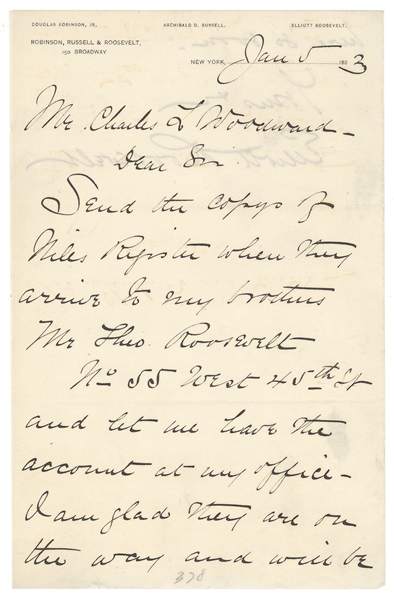 DOUGLAS ROBINSON, JR. ARCHIBALD D. RUSSELL. ELLIOTT ROOSEVELT.
ROBINSON, RUSSELL & ROOSEVELT,
150 BROADWAY
NEW YORK, Jan 5 1883
Mr. Charles L Woodward -
Dear Sir
Send the copys of
Niles Register when they
arrive to my brothers
Mr Theo. Roosevelt
No 55 West 45th St
and let me have the
account at my office -
I am glad they are on
the way and will be
378